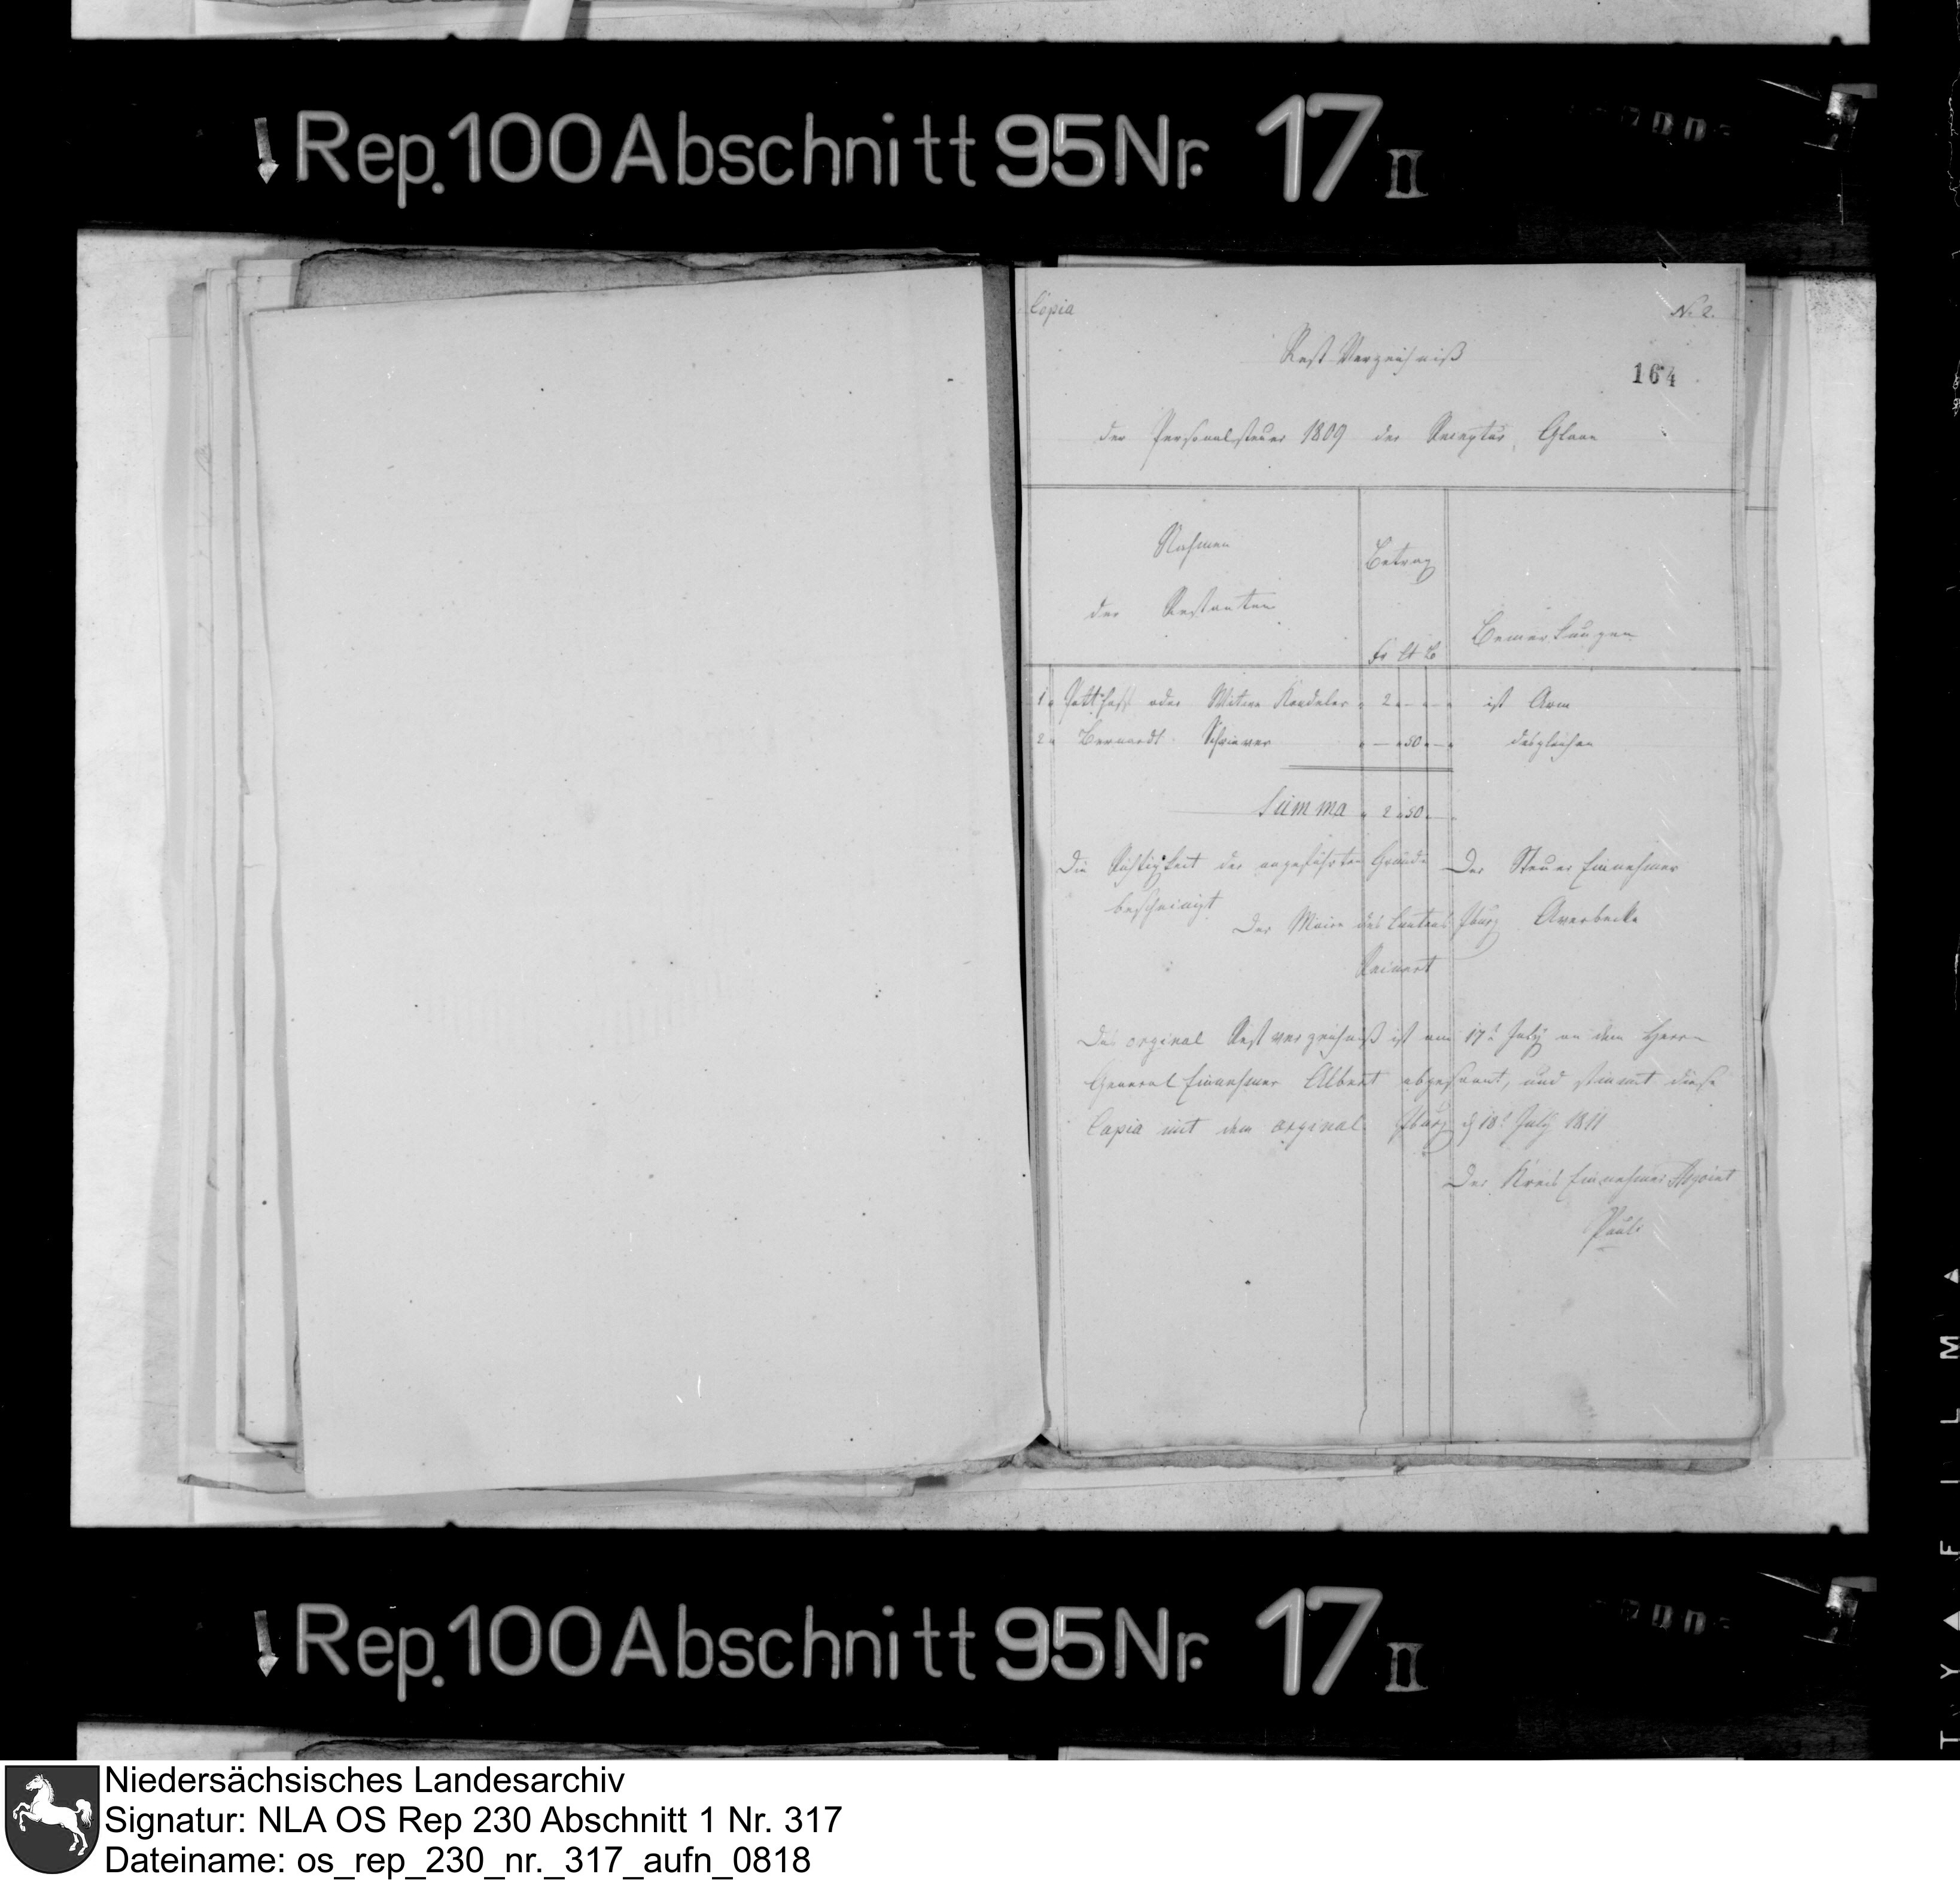 Rep. 100 Abschnitt 95 Nr. 17 II
Copia
No 2.
Rest Verzeichniß
164
der Personalsteuer 1809 der Receptur Glane
Nahmen
der Restanten
Betrag
Fr Ct
Bemerkungen
1 oder Witwe 2 - - ist Arm
2 Bernardt Schriever - 50 - desgleichen
Summa 2 50
Die Richtigkeit der angeführten Gründe
bescheinigt
Der Maire des Cantons Iburg
Reinert
Der Steuer Einnehmer
Averbecke
Das orginal Restverzeichniß ist am 17t July an dem Herrn
General Einnehmer Albert abgesannt, und stimmt diese
Copia mit dem orginal. Iburg d 18t July 1811
Der Kreis Einnehmer
Pauli
Rep. 100 Abschnitt 95 Nr. 17 II
Niedersächsisches Landesarchiv
Signatur: NLA OS Rep 230 Abschnitt 1 Nr. 317
Dateiname: os_rep_230_nr._317_aufn_0818